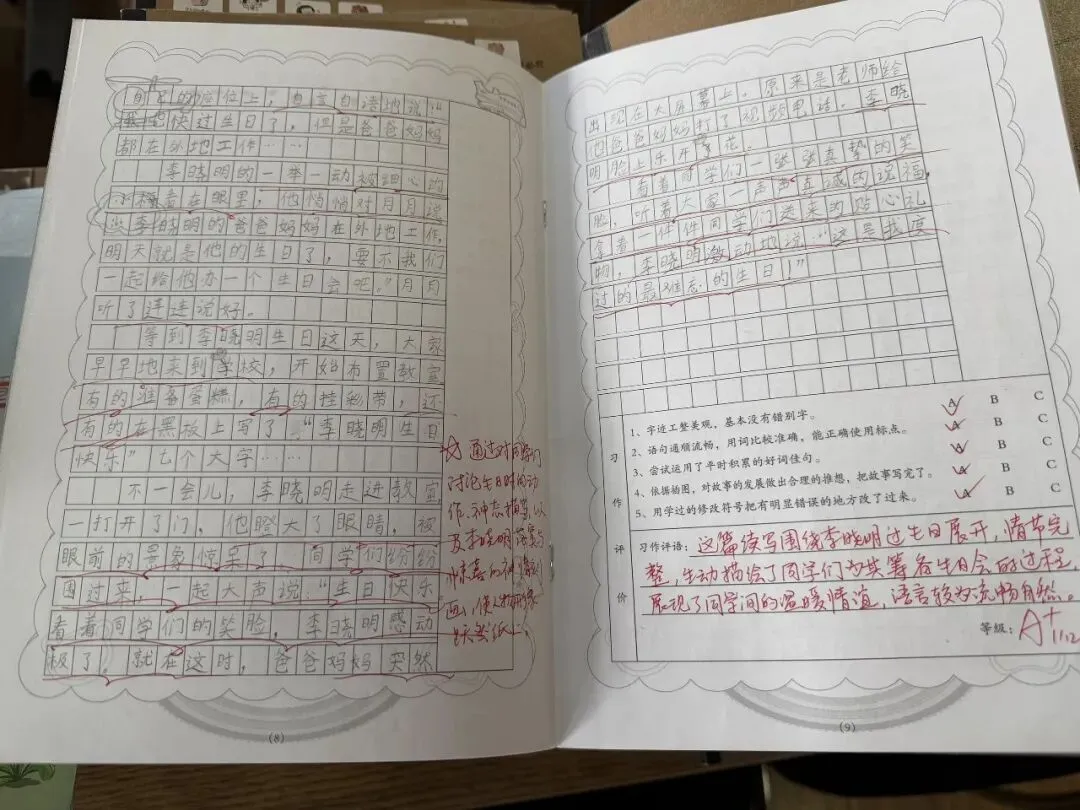 自己的座位上，自言自语地说：“
快过生日了，但是爸爸妈妈
都在外地工作……
李晓明的一举一动被细心的
看在眼里，他悄悄对月月说
李晓明的爸爸妈妈在外地工作，
明天就是他的生日了，要不我们
一起给他办一个生日会吧。”月月
听了连连说好。
等到李晓明生日这天，大家
早早地来到学校，开始布置教室
有的准备蛋糕，有的挂彩带，还
有的在黑板上写了“李晓明生日
快乐”七个大字……
不一会儿，李晓明走进教室，
一打开了门，他瞪大了眼睛，被
眼前的景象惊呆了……同学们纷纷
围过来，一起大声说：“生日快乐
看着同学们的笑脸，李晓明感动
极了。就在这时，爸爸妈妈突然
通过对同学们
讨论生日时的动
作、神态描写，以
及李晓明
惊喜的神情刻
画，使人物形象
跃然纸上。
(8)
出现在大屏幕上。原来是老师给
他爸爸妈妈打了视频电话。李晓
明脸上乐开了花。
看着同学们一张张真挚的笑
脸，听着大家一声声真诚的祝福，
拿着一件件同学们送来的贴心礼
物，李晓明激动地说：“这是我度
过的最难忘的生日！”
习作评价
1、字迹工整美观，基本没有错别字。 A B C
2、语句通顺流畅，用词比较准确，能正确使用标点。 A B C
3、尝试运用了平时积累的好词佳句。 A B C
4、依据插图，对故事的发展做出合理的推想，把故事写完了。 A B C
5、用学过的修改符号把有明显错误的地方改了过来。 A B C
习作评语：这篇续写围绕李晓明过生日展开，情节完
整，生动描绘了同学们为其筹备生日会的过程，
展现了同学间的温暖情谊，语言较为流畅自然。
等级：A+
11.12
(9)